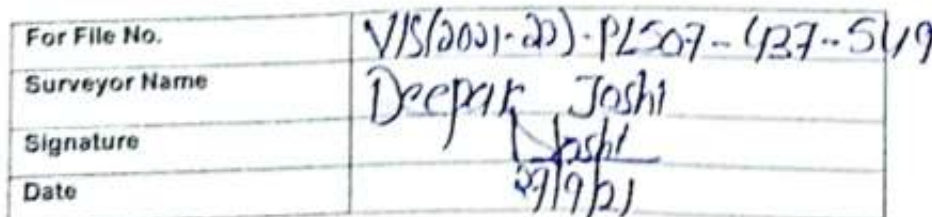 For File No. VIS(2021-22)-PL507-437-549
Surveyor Name Deepak Joshi
Signature Joshi
Date 27/9/21